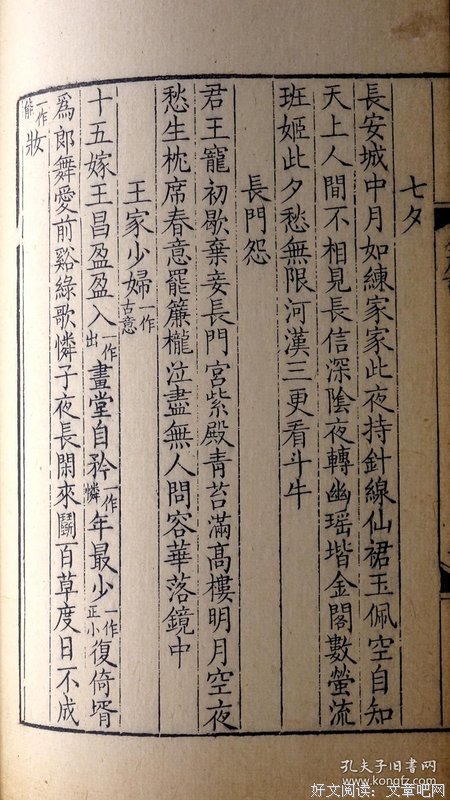 七夕
長安城中月如練家家此夜持針線仙裙玉佩空自知
天上人間不相見長信深陰夜轉幽瑶堦金閣數螢流
班姬此夕愁無限河漢三更看斗牛
長門怨
君王寵初歇棄妾長門宮紫殿青苔滿高樓明月空夜
愁生枕席春意罷簾櫳泣盡無人問容華落鏡中
王家少婦一作古意
十五嫁王昌盈盈入一作出畫堂自矜一作憐年最少一作正小復倚壻
爲郎舞愛前谿綠歌憐子夜長閑來鬬百草度日不成
一作能妝
孔夫子旧書网
www.kongfz.com
好文阅读：文章吧网